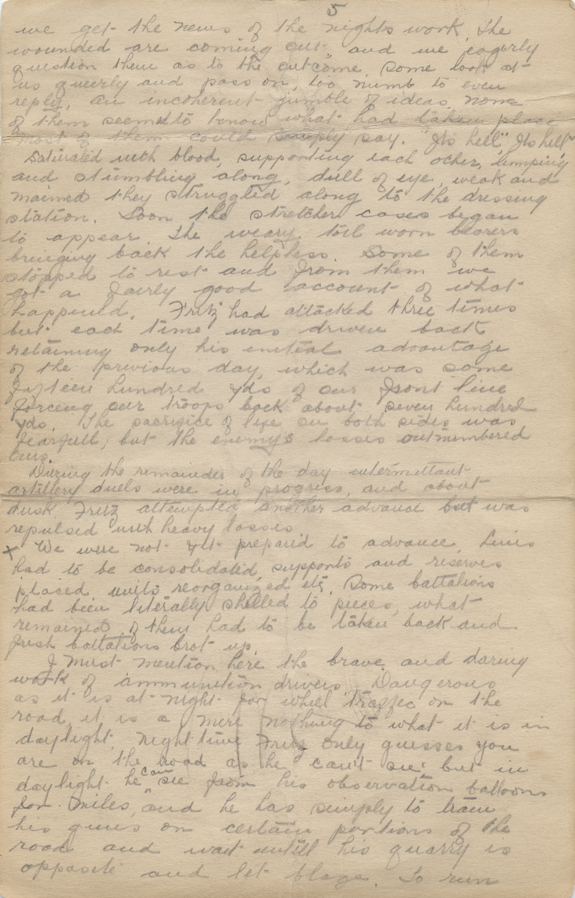 5
we get the news of the nights work. The
wounded are coming out and we eagerly
question them as to the outcome. Some look at
us queerly and pass on, too numb to even
reply, an incoherent jumble of ideas, none
of them seemed to know what had taken place
most of them could simply say. "Its hell", Its hell"
Saturated with blood, supporting each other, limping
and stumbling along, dull of eye, weak and
maimed they struggled along to the dressing
station. Soon the stretcher cases began
to appear. The weary, toil worn bearers
bringing back the helpless. Some of them
stopped to rest and from them we
got a fairly good account of what
happened. Fritz had attacked three times
but each time was driven back
retaining only his initial advantage
of the previous day, which was some
fifteen hundred yds of our front line
forcing our troops back about seven hundred
yds. The sacrifice of life on both sides was
fearfull; but the enemys losses outnumbered
ours.
During the remainder of the day intermittant
artillery duels were in progress, and about
dusk Fritz attempted another advance but was
repulsed with heavy losses
x We were not yet prepared to advance. Lines
had to be consolidated, supports and reserves
placed, units reorganized etc. Some battalions
had been literally shelled to pieces, what
remained of them had to be taken back and
fresh battalions brot up.
I must mention here the brave and daring
work of ammunition drivers. Dangerous
as it is at night for wheel traffic on the
road, it is a mere nothing to what it is in
daylight. Night time Fritz only guesses you
are on the road as he can't see but in
daylight he can see from his observation balloons
for miles, and he has simply to train
his guns on certain portions of the
road and wait untill his quarry is
opposite and let blaze. To run